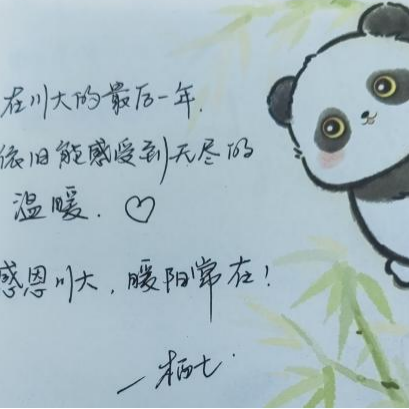 在川大的最后一年.
依旧能感受到无尽的
温暖. ♡
感恩川大，暖阳常在！
—柄七.